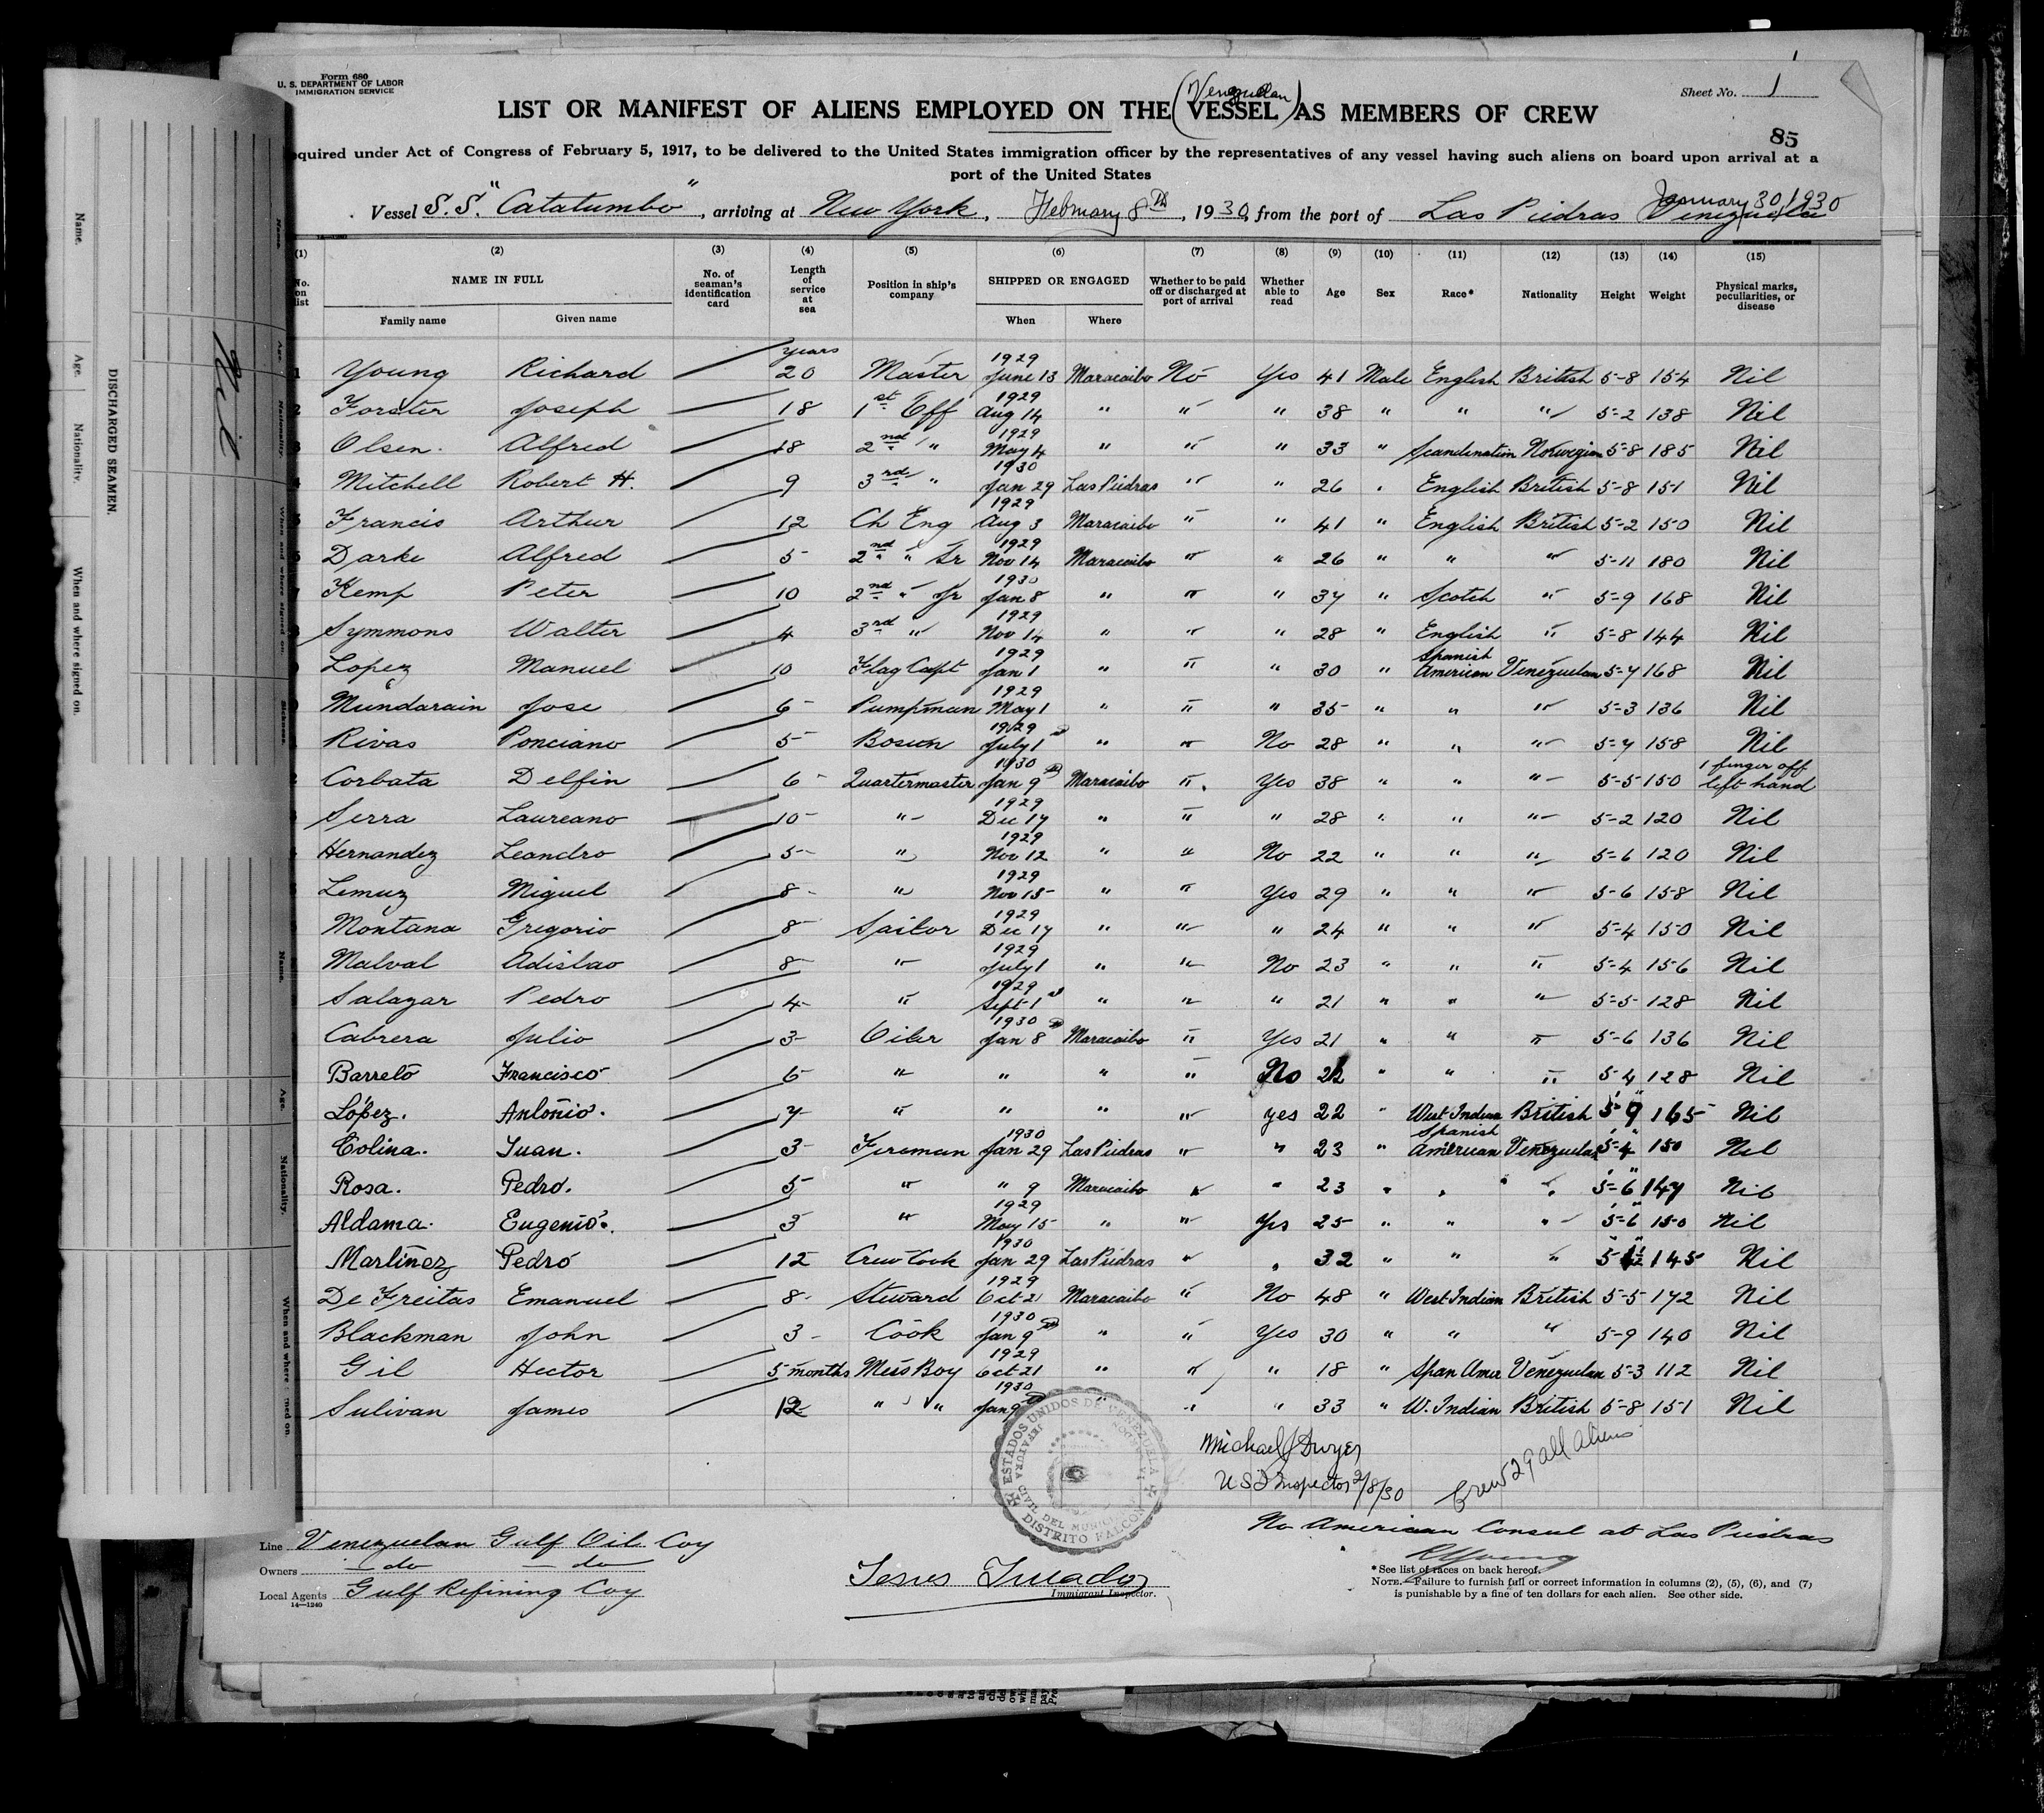 Form 680
U. S. DEPARTMENT OF LABOR
IMMIGRATION SERVICE
Sheet No. 1
(Venezuelan)
LIST OR MANIFEST OF ALIENS EMPLOYED ON THE VESSEL AS MEMBERS OF CREW
85
quired under Act of Congress of February 5, 1917, to be delivered to the United States immigration officer by the representatives of any vessel having such aliens on board upon arrival at a
port of the United States
January 30, 1930
Vessel S.S. "Catatumbo", arriving at New York, February 8th, 1930, from the port of Las Piedras Venezuela
14—1240
(1) (2) (3) (4) (5) (6) (7) (8) (9) (10) (11) (12) (13) (14) (15)
No. on list NAME IN FULL No. of seaman's identification card Length of service at sea Position in ship's company SHIPPED OR ENGAGED Whether to be paid off or discharged at port of arrival Whether able to read Age Sex Race* Nationality Height Weight Physical marks, peculiarities, or disease
Family name Given name When Where
1 Young Richard years 20 Master 1929 June 13 Maracaibo No Yes 41 Male English British 5-8 154 Nil
2 Forster Joseph 18 1st Off 1929 Aug 14 " " " 38 " " " 5-2 138 Nil
3 Olsen. Alfred 18 2nd " 1929 May 4 " " " 33 " Scandination Norwegian 5-8 185 Nil
4 Mitchell Robert H. 9 3rd " 1930 Jan 29 Las Piedras " " 26 " English British 5-8 151 Nil
5 Francis Arthur 12 Ch Eng 1929 Aug 3 Maracaibo " " 41 " English British 5-2 150 Nil
6 Darke Alfred 5 2nd " Sr 1929 Nov 14 Maracaibo " " 26 " " " 5-11 180 Nil
7 Kemp Peter 10 2nd " Jr 1930 Jan 8 " " " 37 " Scotch " 5-9 168 Nil
8 Symmons Walter 4 3rd " 1929 Nov 14 " " " 28 " English " 5-8 144 Nil
9 Lopez Manuel 10 Flag Capt 1929 Jan 1 " " " 30 " Spanish American Venezuelan 5-7 168 Nil
0 Mundarain Jose 6 Pumpman 1929 May 1 " " " 35 " " " 5-3 136 Nil
Rivas Ponciano 5 Bosun 1929 July 1st " " No 28 " " " 5-7 158 Nil
2 Corbata Delfin 6 Quartermaster 1930 Jan 9th Maracaibo " Yes 38 " " " 5-5 150 1 finger off left hand
Serra Laureano 10 " 1929 Dec 17 " " " 28 " " " 5-2 120 Nil
Hernandez Leandro 5 " 1929 Nov 12 " " No 22 " " " 5-6 120 Nil
Lemuz Miguel 8 " 1929 Nov 15 " " Yes 29 " " " 5-6 158 Nil
Montana Gregorio 8 Sailor 1929 Dec 17 " " " 24 " " " 5-4 150 Nil
Malval Adislao 8 " 1929 July 1 " " No 23 " " " 5-4 156 Nil
Salazar Pedro 4 " 1929 Sept 1st " " " 21 " " " 5-5 128 Nil
Cabrera Julio 3 Oiler 1930 Jan 8th Maracaibo " Yes 21 " " " 5-6 136 Nil
Barreto Francisco 6 " " " " No " " " 5-4 128 Nil
López. Antonio. 7 " " " " yes 22 " West Indian British 5-9 165 Nil
Colina. Juan. 3 Fireman 1930 Jan 29 Las Piedras " " 23 " Spanish American Venezuelan 5-4 150 Nil
Rosa. Pedro. 5 " " 9 Maracaibo " " 23 " " " 5-6 147 Nil
Aldama. Eugenio. 3 " 1929 May 15 " " Yes 25 " " " 5-6 150 Nil
Martinez Pedro 12 Crew Cook 1930 Jan 29 Las Piedras " " 32 " " " 145 Nil
De Freitas Emanuel 8 Steward 1929 Oct 21 Maracaibo " No 48 " West Indian British 5-5 172 Nil
Blackman John 3 Cook 1930 Jan 9th " " Yes 30 " " " 5-9 140 Nil
Gil Hector 5 months Mess Boy 1929 Oct 21 " " " 18 " Span Amer Venezuelan 5-3 112 Nil
Sulivan James 12 " " 1930 Jan 9th " " " 33 " W. Indian British 5-8 151 Nil
Michael J Dwyer
U S I Inspector 2/8/30
Crew 29 all aliens
ESTADOS UNIDOS DE VENEZUELA
JEFATURA
DEL MUNICI
DISTRITO FALCON
No American Consul at Las Piedras
RYoung
Line Venezuelan Gulf Oil Coy
Owners do do
Local Agents Gulf Refining Coy
14—1240
Immigrant Inspector.
*See list of races on back hereof.
NOTE.—Failure to furnish full or correct information in columns (2), (5), (6), and (7)
is punishable by a fine of ten dollars for each alien. See other side.
DISCHARGED SEAMEN.
Name. Age. Nationality. When and where signed on.
Nil
Name. Age. Nationality. When and where signed on. Sickness.
Name. Age. Nationality. When and where